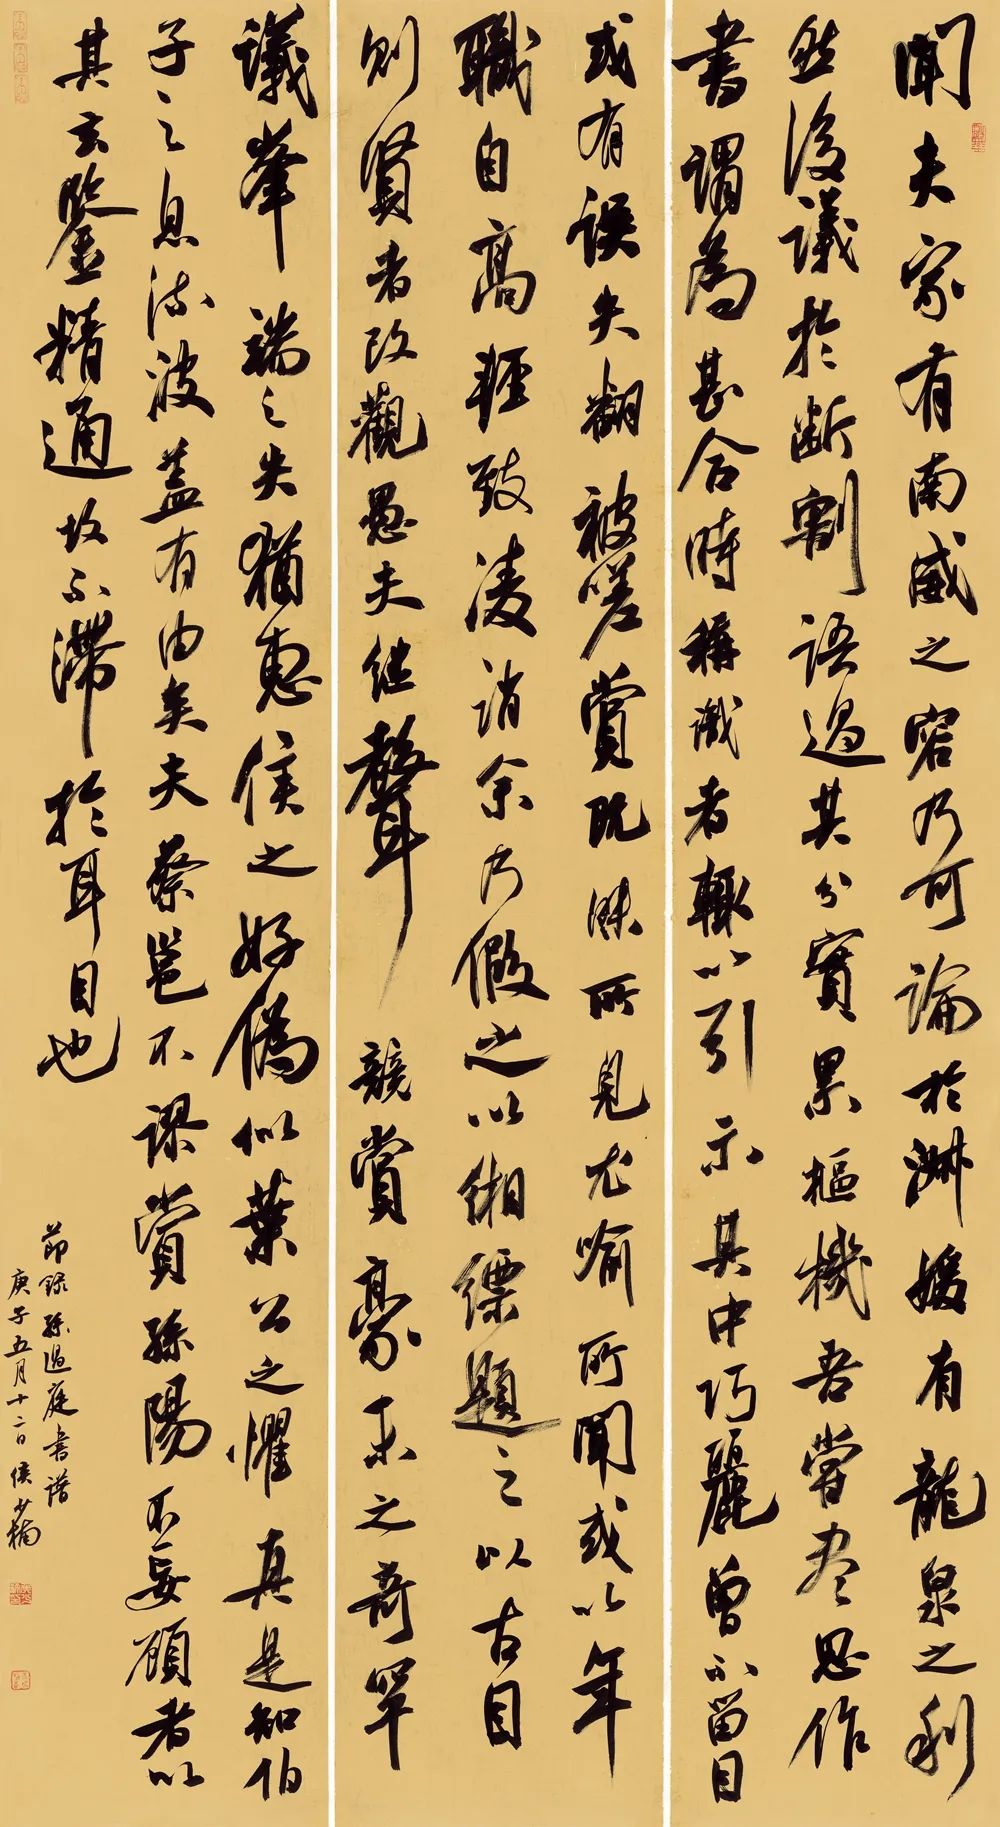 聞夫家有南威之容乃可論於淋媛有龍泉之利
然後議於断割語過其分實累樞機吾嘗尽思作
書謂為甚合時稱識者輙以引示其中巧麗曾不留目
或有误失翻被嗟賞既昧所見尤喻所聞或以年
職自高輕致淩誚余乃假之以缃縹題之以古目
则賢者改觀愚夫继聲競賞豪末之奇罕
議峯端之失猶惠侯之好偽似葉公之懼真是知伯
子之息流波盖有由矣夫蔡邕不謬賞孫陽不妄顧者以
其玄鑒精通故不滞於耳目也
節録孫過庭書譜
庚子五月十二日侯少楠